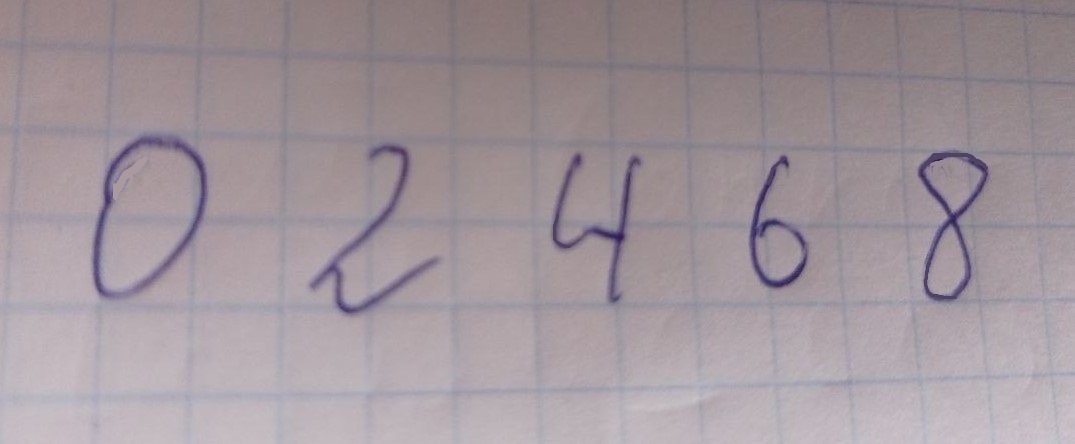 0 2 4 6 8